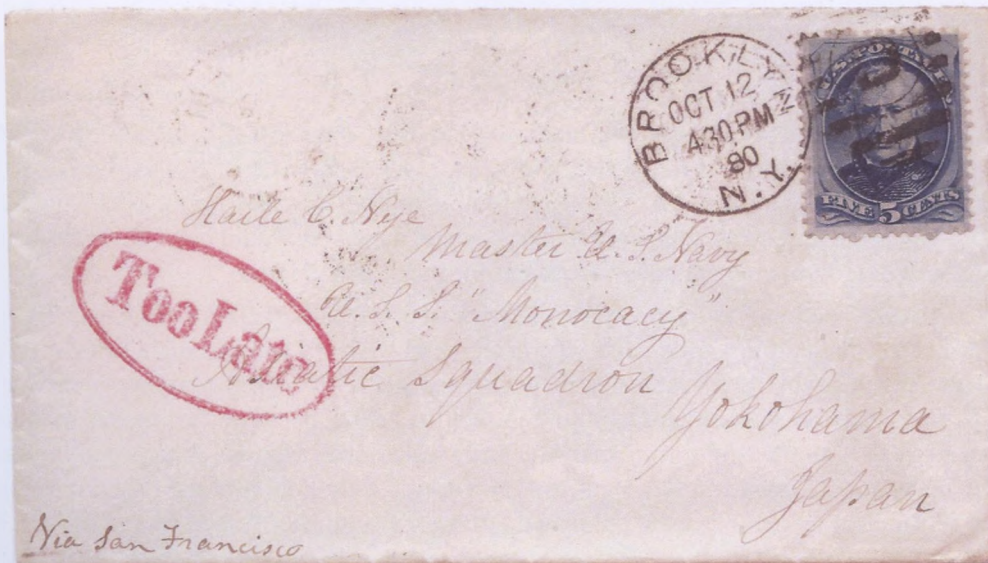 BROOKLYN
OCT 12
430PM
80
N.Y.
U.S. POSTAGE
FIVE 5 CENTS
Haile C. Nye
Master U. S. Navy
U. S. S. "Monocacy"
Asiatic Squadron
Yokohama
Japan
Too Late
Via San Francisco